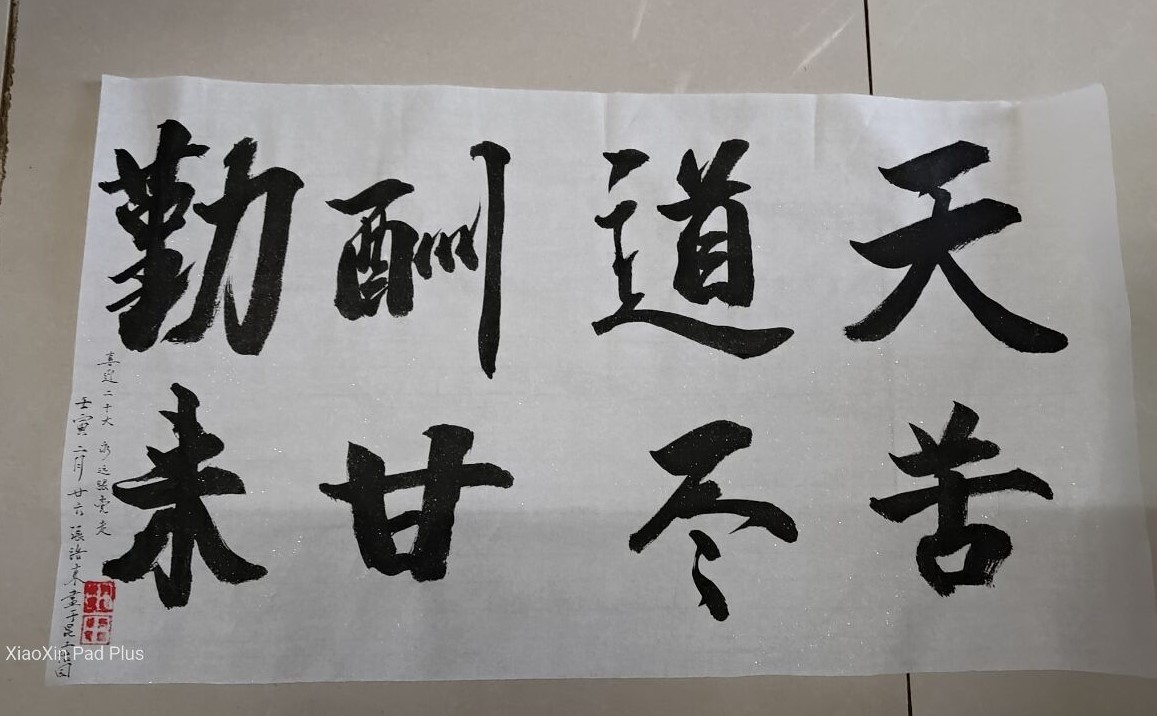 天道酬勤
苦尽甘来
喜迎二十大 永远跟党走
壬寅二月廿六 张洛东书于昆
XiaoXin Pad Plus